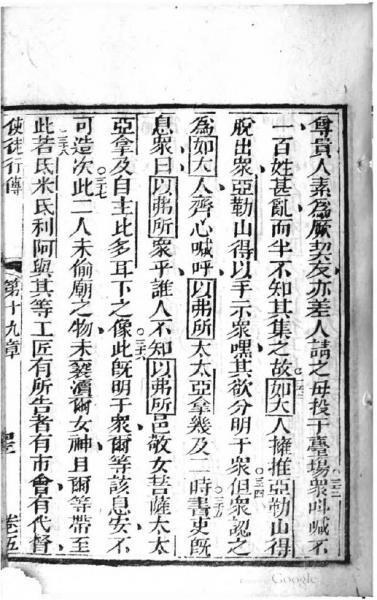 尊貴人素為厥契友亦差人請之毋投于臺場衆呌喊不
〇三二
一百姓甚亂而半不知其集之故如大人擁推亞勒山得
〇三三
脫出衆亞勒山得以手示衆嘿其欲分明于衆但衆認之
〇三四
為如大人齊心喊呼以弗所太太亞拿幾及一時書吏旣
〇三五
息衆曰以弗所衆乎誰人不知以弗所邑敬女菩薩太太
亞拿及自主此多耳下之像此旣明于衆爾等該息安不
〇三六
可造次此二人未偷廟之物未褻瀆爾女神且爾等帶至
〇三七
此若氐米氐利阿與其等工匠有所告者有市會有代督
〇三八
使徒行傳
第十九章
卷五
Google